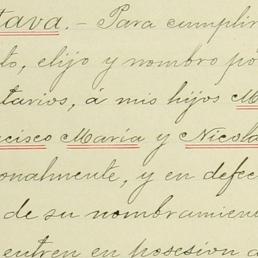 tava. - Para cumplir
to, elijo y nombro po
tarios, á mis hijos M
ncisco María y Nicola
onalmente, y en defec
de su nombramien
entren en posesión d